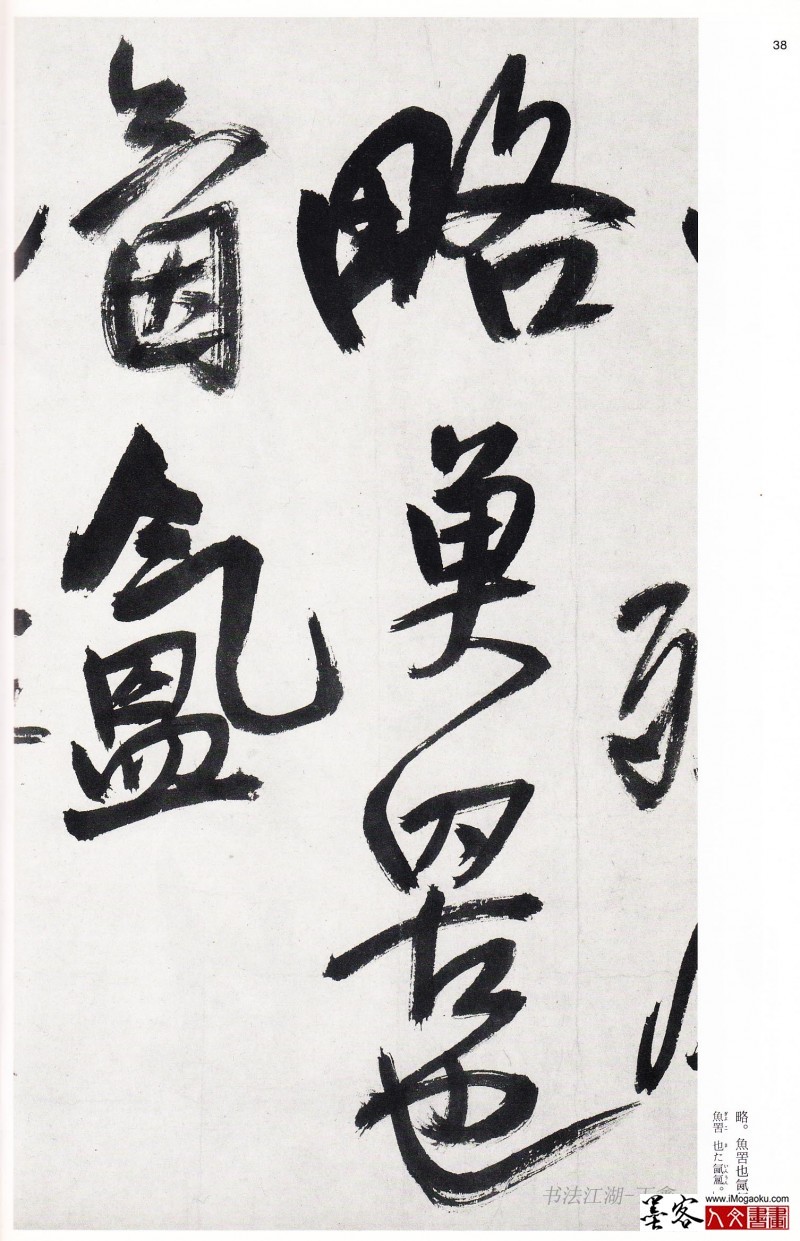 38
略魚罟也
氤氳
略。魚罟也氤
魚罟也た氤氳。
书法江湖-王
墨客
www.iMogaoku.com
人文書畫